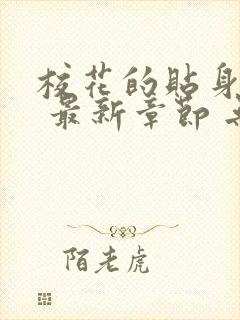 校花的贴身
最新章节
陌老虎